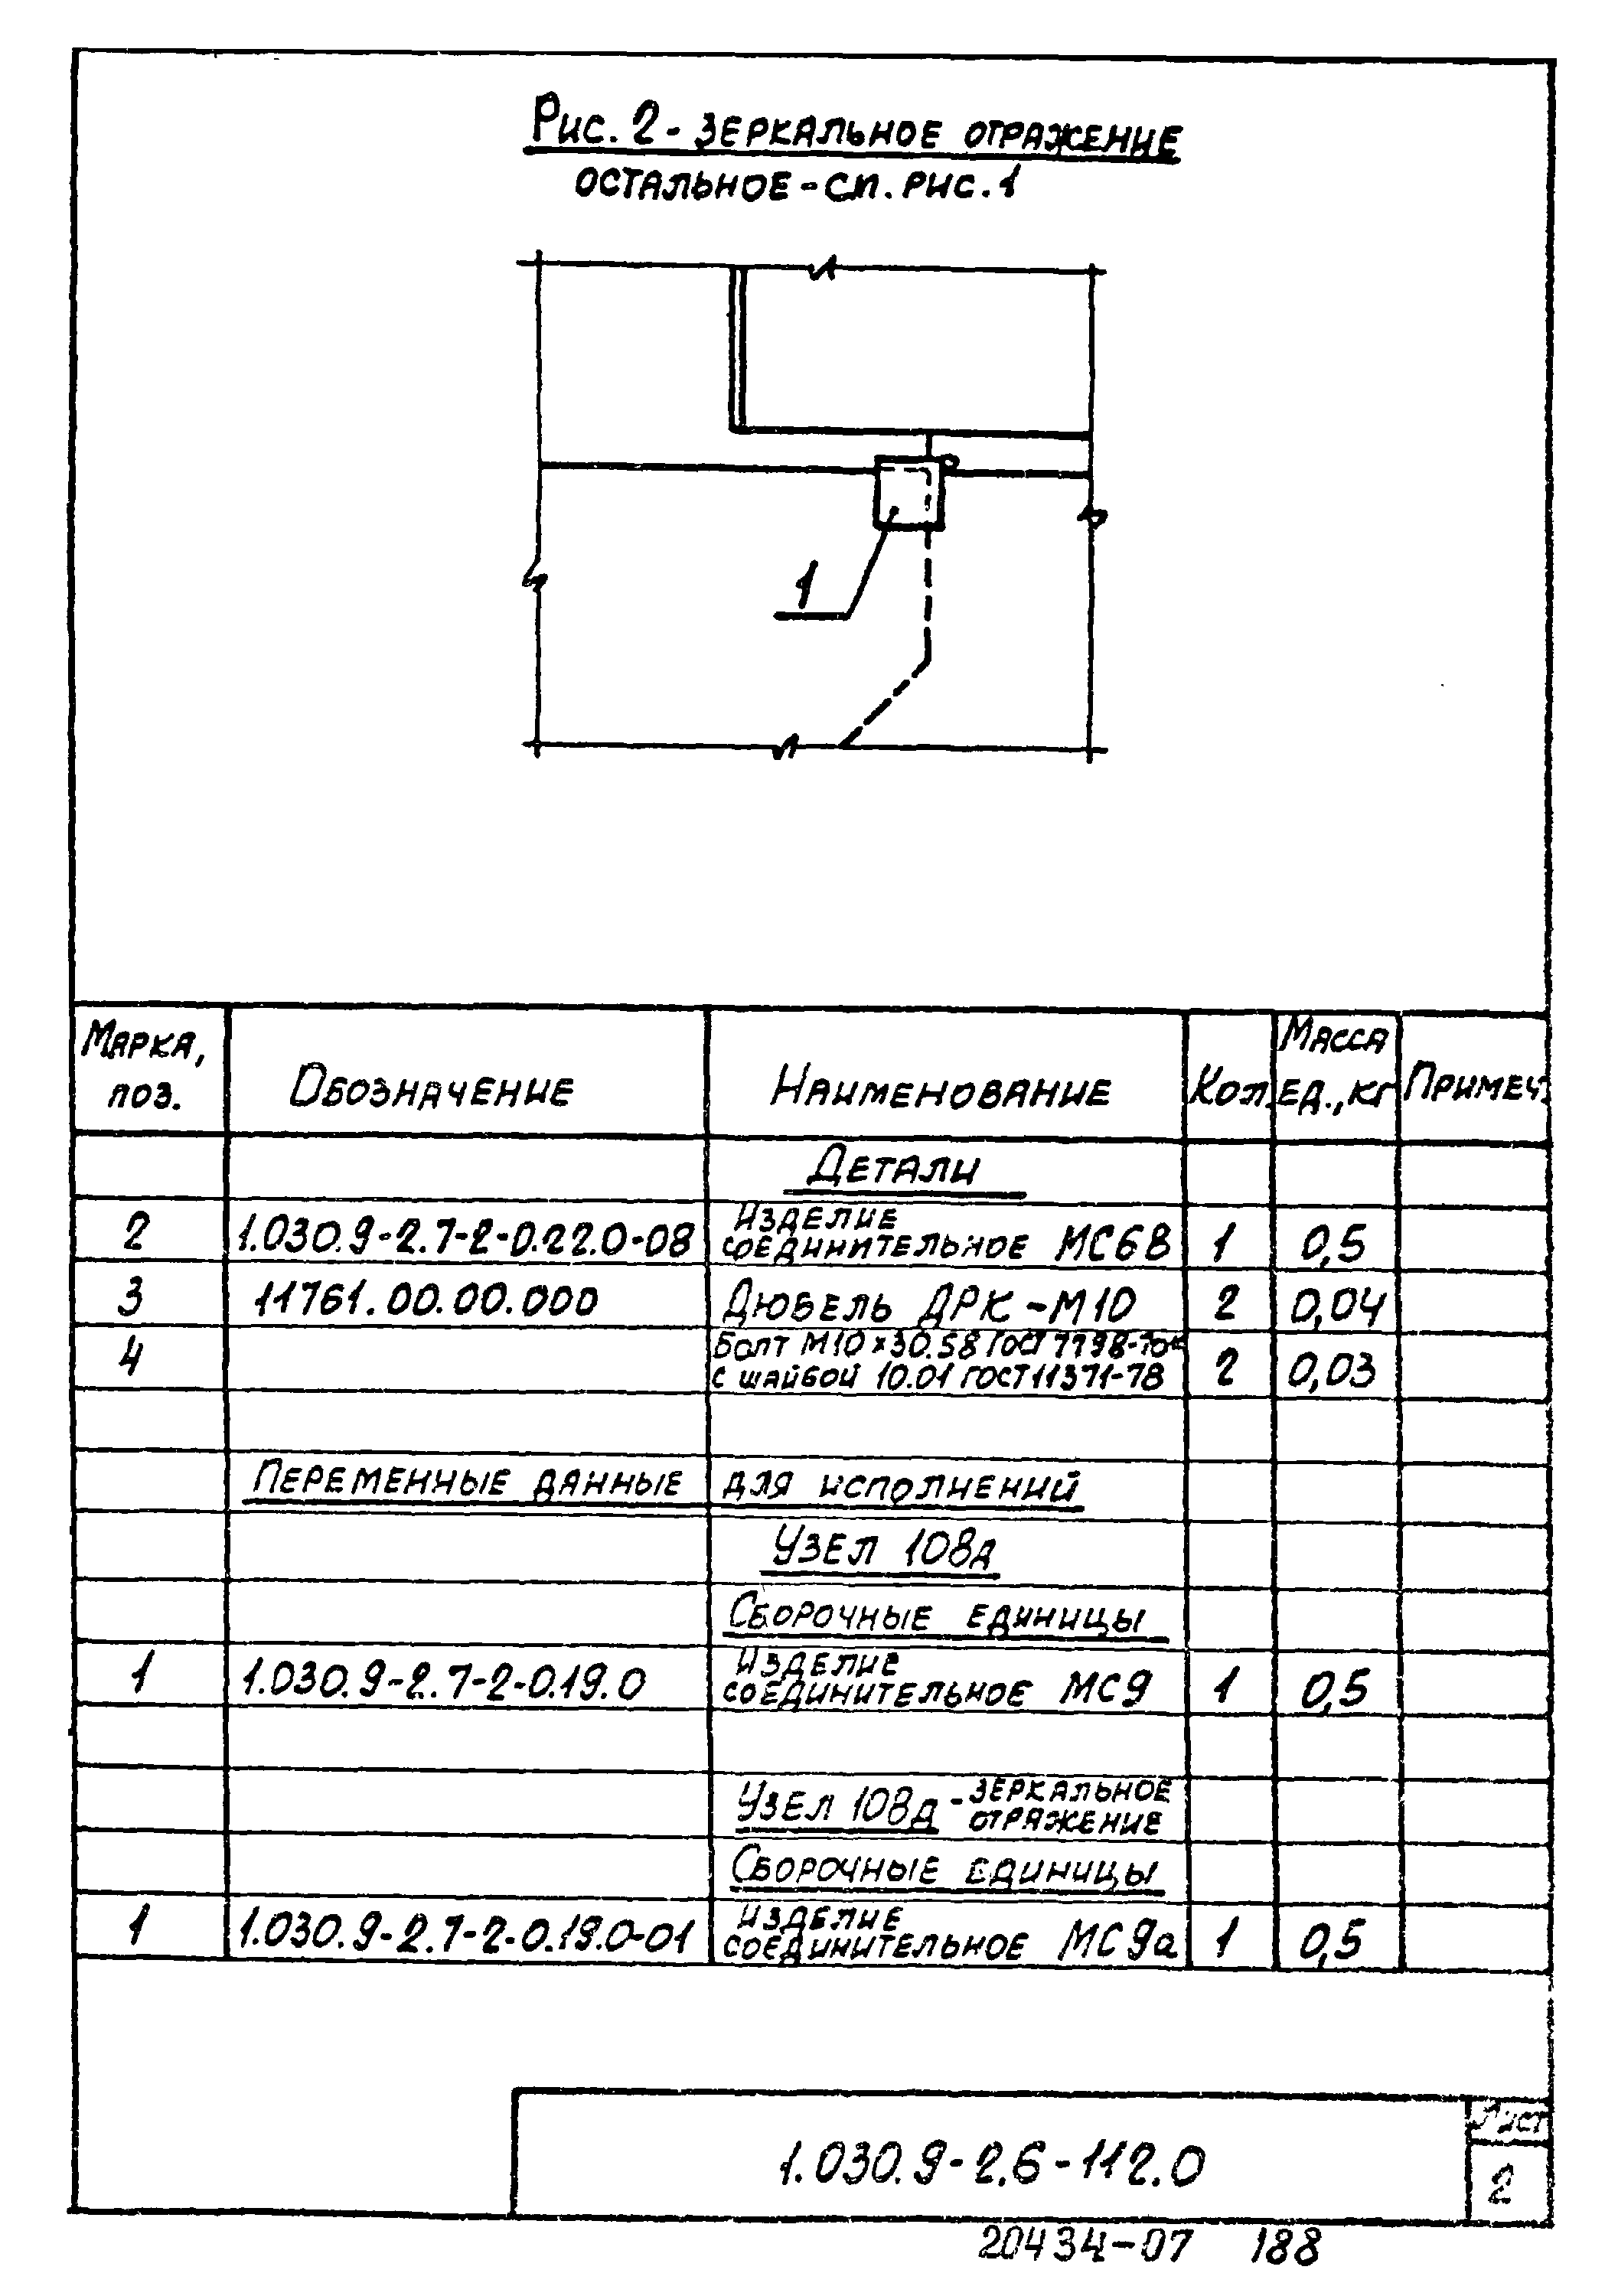 Рис. 2 - зеркальное отражение
остальное - см. рис. 1
1
Марка, поз. Обозначение Наименование Кол. Масса ед., кг Примеч.
Детали
2 1.030.9-2.7-2-0.22.0-08 Изделие соединительное МС68 1 0,5
3 11761.00.00.000 Дюбель ДРК-М10 2 0,04
4 Болт М10х30.58 ГОСТ 7798-70* с шайбой 10.01 ГОСТ 11371-78 2 0,03
Переменные данные для исполнений
Узел 108д
Сборочные единицы
1 1.030.9-2.7-2-0.19.0 Изделие соединительное МС9 1 0,5
Узел 108д - зеркальное отражение
Сборочные единицы
1 1.030.9-2.7-2-0.19.0-01 Изделие соединительное МС9а 1 0,5
1.030.9-2.6-112.0
Лист
2
20434-07 188